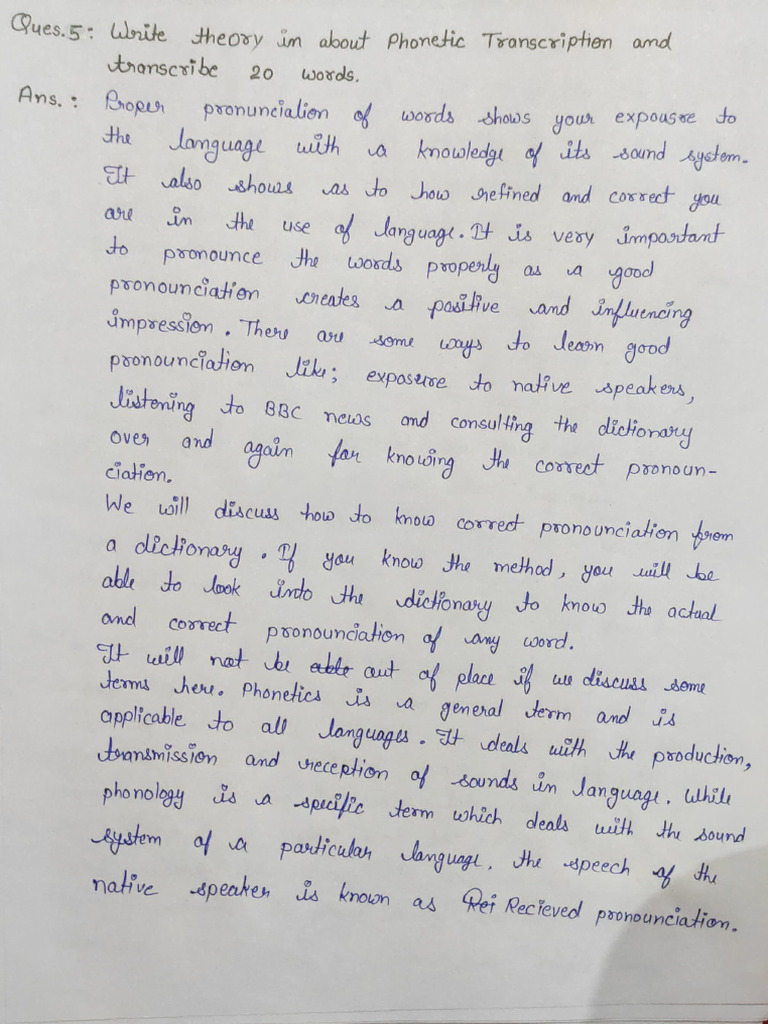 Ques.5: Write theory in about Phonetic Transcription and
transcribe 20 words.
Ans.: Proper pronunciation of words shows your expousre to
the language with a knowledge of its sound system.
It also shows as to how refined and correct you
are in the use of language. It is very important
to pronounce the words properly as a good
pronounciation creates a positive and influencing
impression. There are some ways to learn good
pronounciation like; exposure to native speakers,
listening to BBC news and consulting the dictionary
over and again for knowing the correct pronoun-
ciation.
We will discuss how to know correct pronounciation from
a dictionary. If you know the method, you will be
able to look into the dictionary to know the actual
and correct pronounciation of any word.
It will not be able out of place if we discuss some
terms here. Phonetics is a general term and is
applicable to all languages. It deals with the production,
transmission and reception of sounds in language. While
phonology is a specific term which deals with the sound
system of a particular language. the speech of the
native speaker is known as Rei Recieved pronounciation.